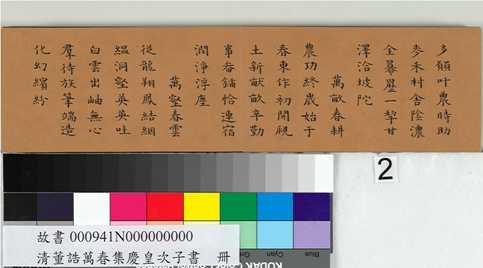 多顧叶農時助
麥禾村舍陰濃
全暴歷一犂甘
澤洽坡陀
萬畝春耕
農功終歲始于
春東作初開視
土新畝畝辛勤
事畚鍤恰連宿
潤淨浮塵
萬壑春雲
從龍翔鳳結絪
縕洞壑英英吐
白雲出岫無心
羣待族筆端造
化幻繽紛
2
故書 000941N000000000
清董誥萬春集慶皇次子書 冊
KODAK
Cyan
Blue